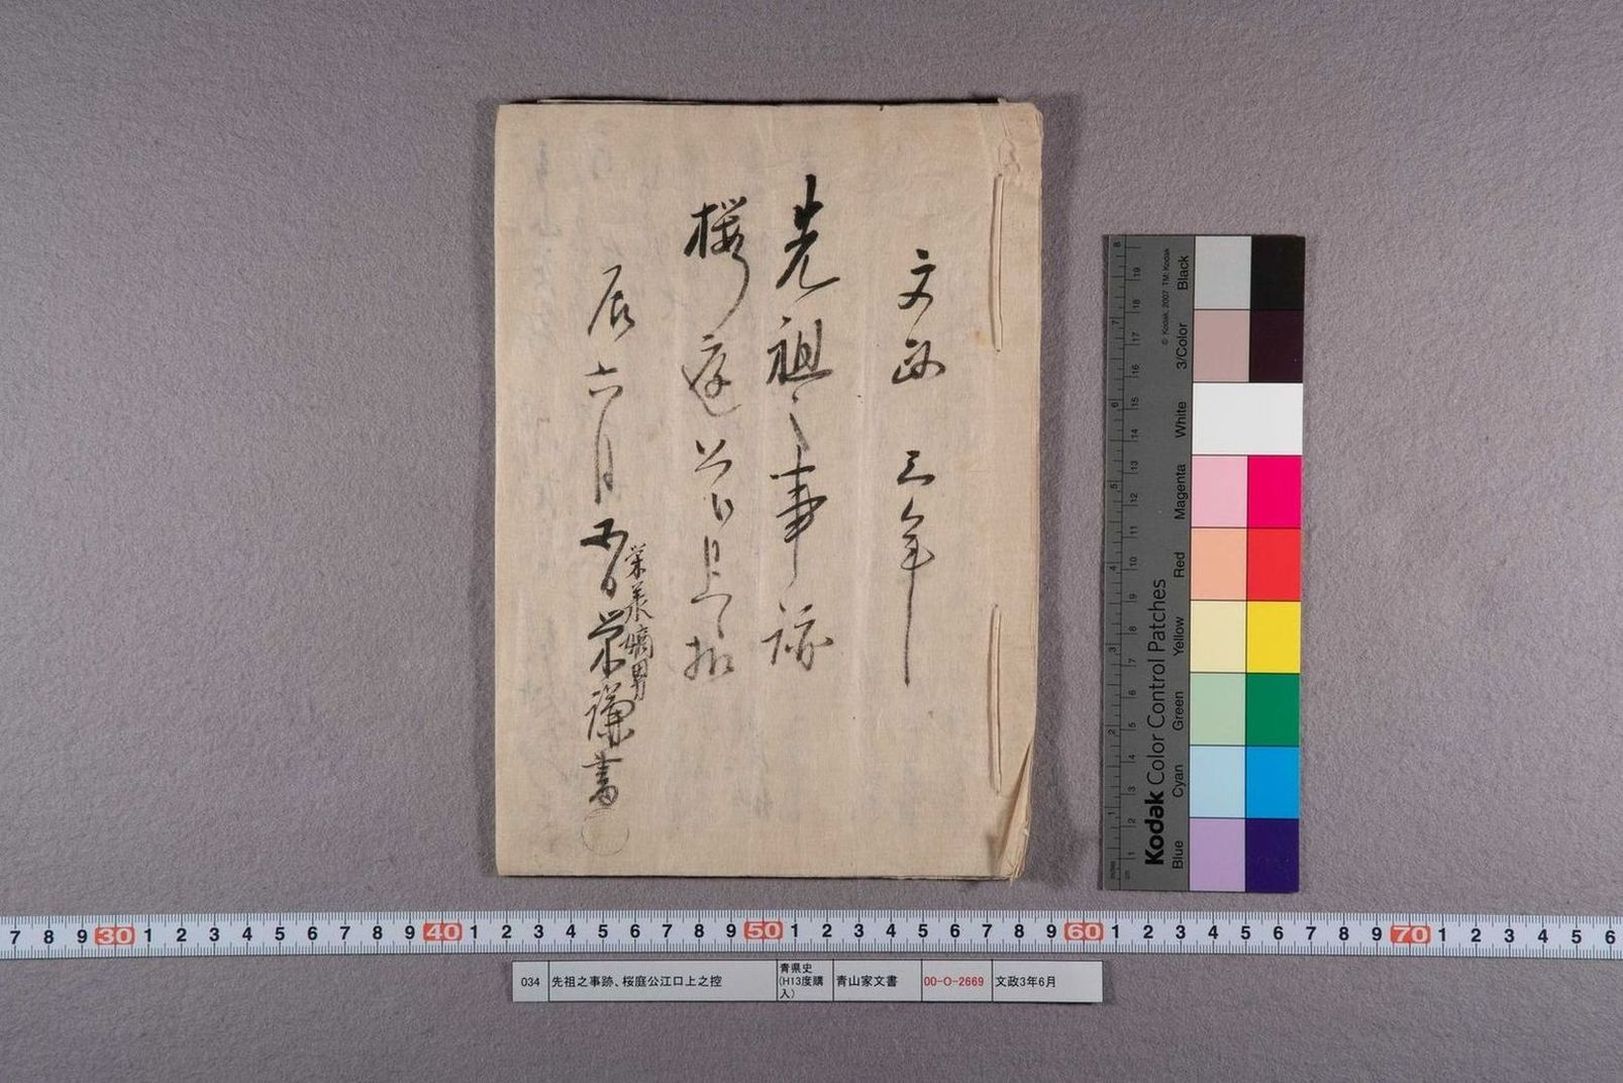 文政三年
先祖之事跡
桜庭公江口上之控
辰六月 栄謙書
嫡男
8 7 6 5 4 3 2 1
19 18 17 16 15 14 13 12 11 10 9 8 7 6 5 4 3 2 1
inches cm
© Kodak, 2007 TM: Kodak
Kodak Color Control Patches
Blue Cyan Green Yellow Red Magenta White 3/Color Black
7 8 9 30 1 2 3 4 5 6 7 8 9 40 1 2 3 4 5 6 7 8 9 50 1 2 3 4 5 6 7 8 9 60 1 2 3 4 5 6 7 8 9 70 1 2 3 4 5 6
034 先祖之事跡、桜庭公江口上之控 青県史(H13度購入) 青山家文書 00-O-2669 文政3年6月